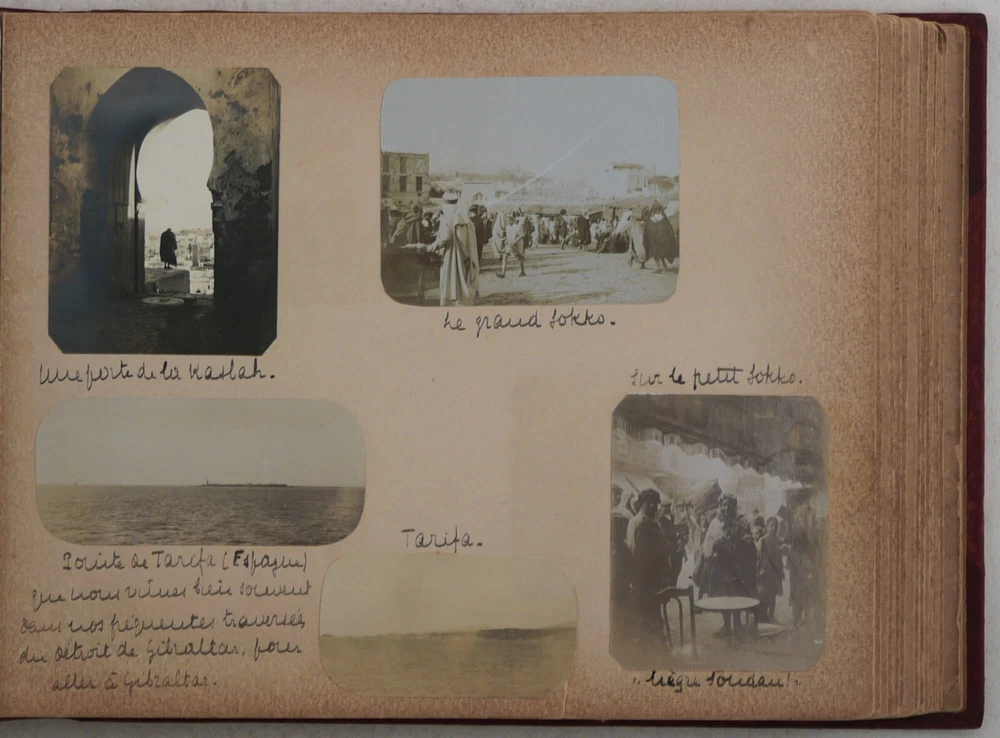 Une porte de la Kasbah.
Le grand Sokko.
Sur le petit Sokko.
Pointe de Tarifa (Espagne)
que nous vîmes bien souvent
dans nos fréquentes traversées
du détroit de Gibraltar, pour
aller à Gibraltar.
Tarifa.
"Nègre Soudan".